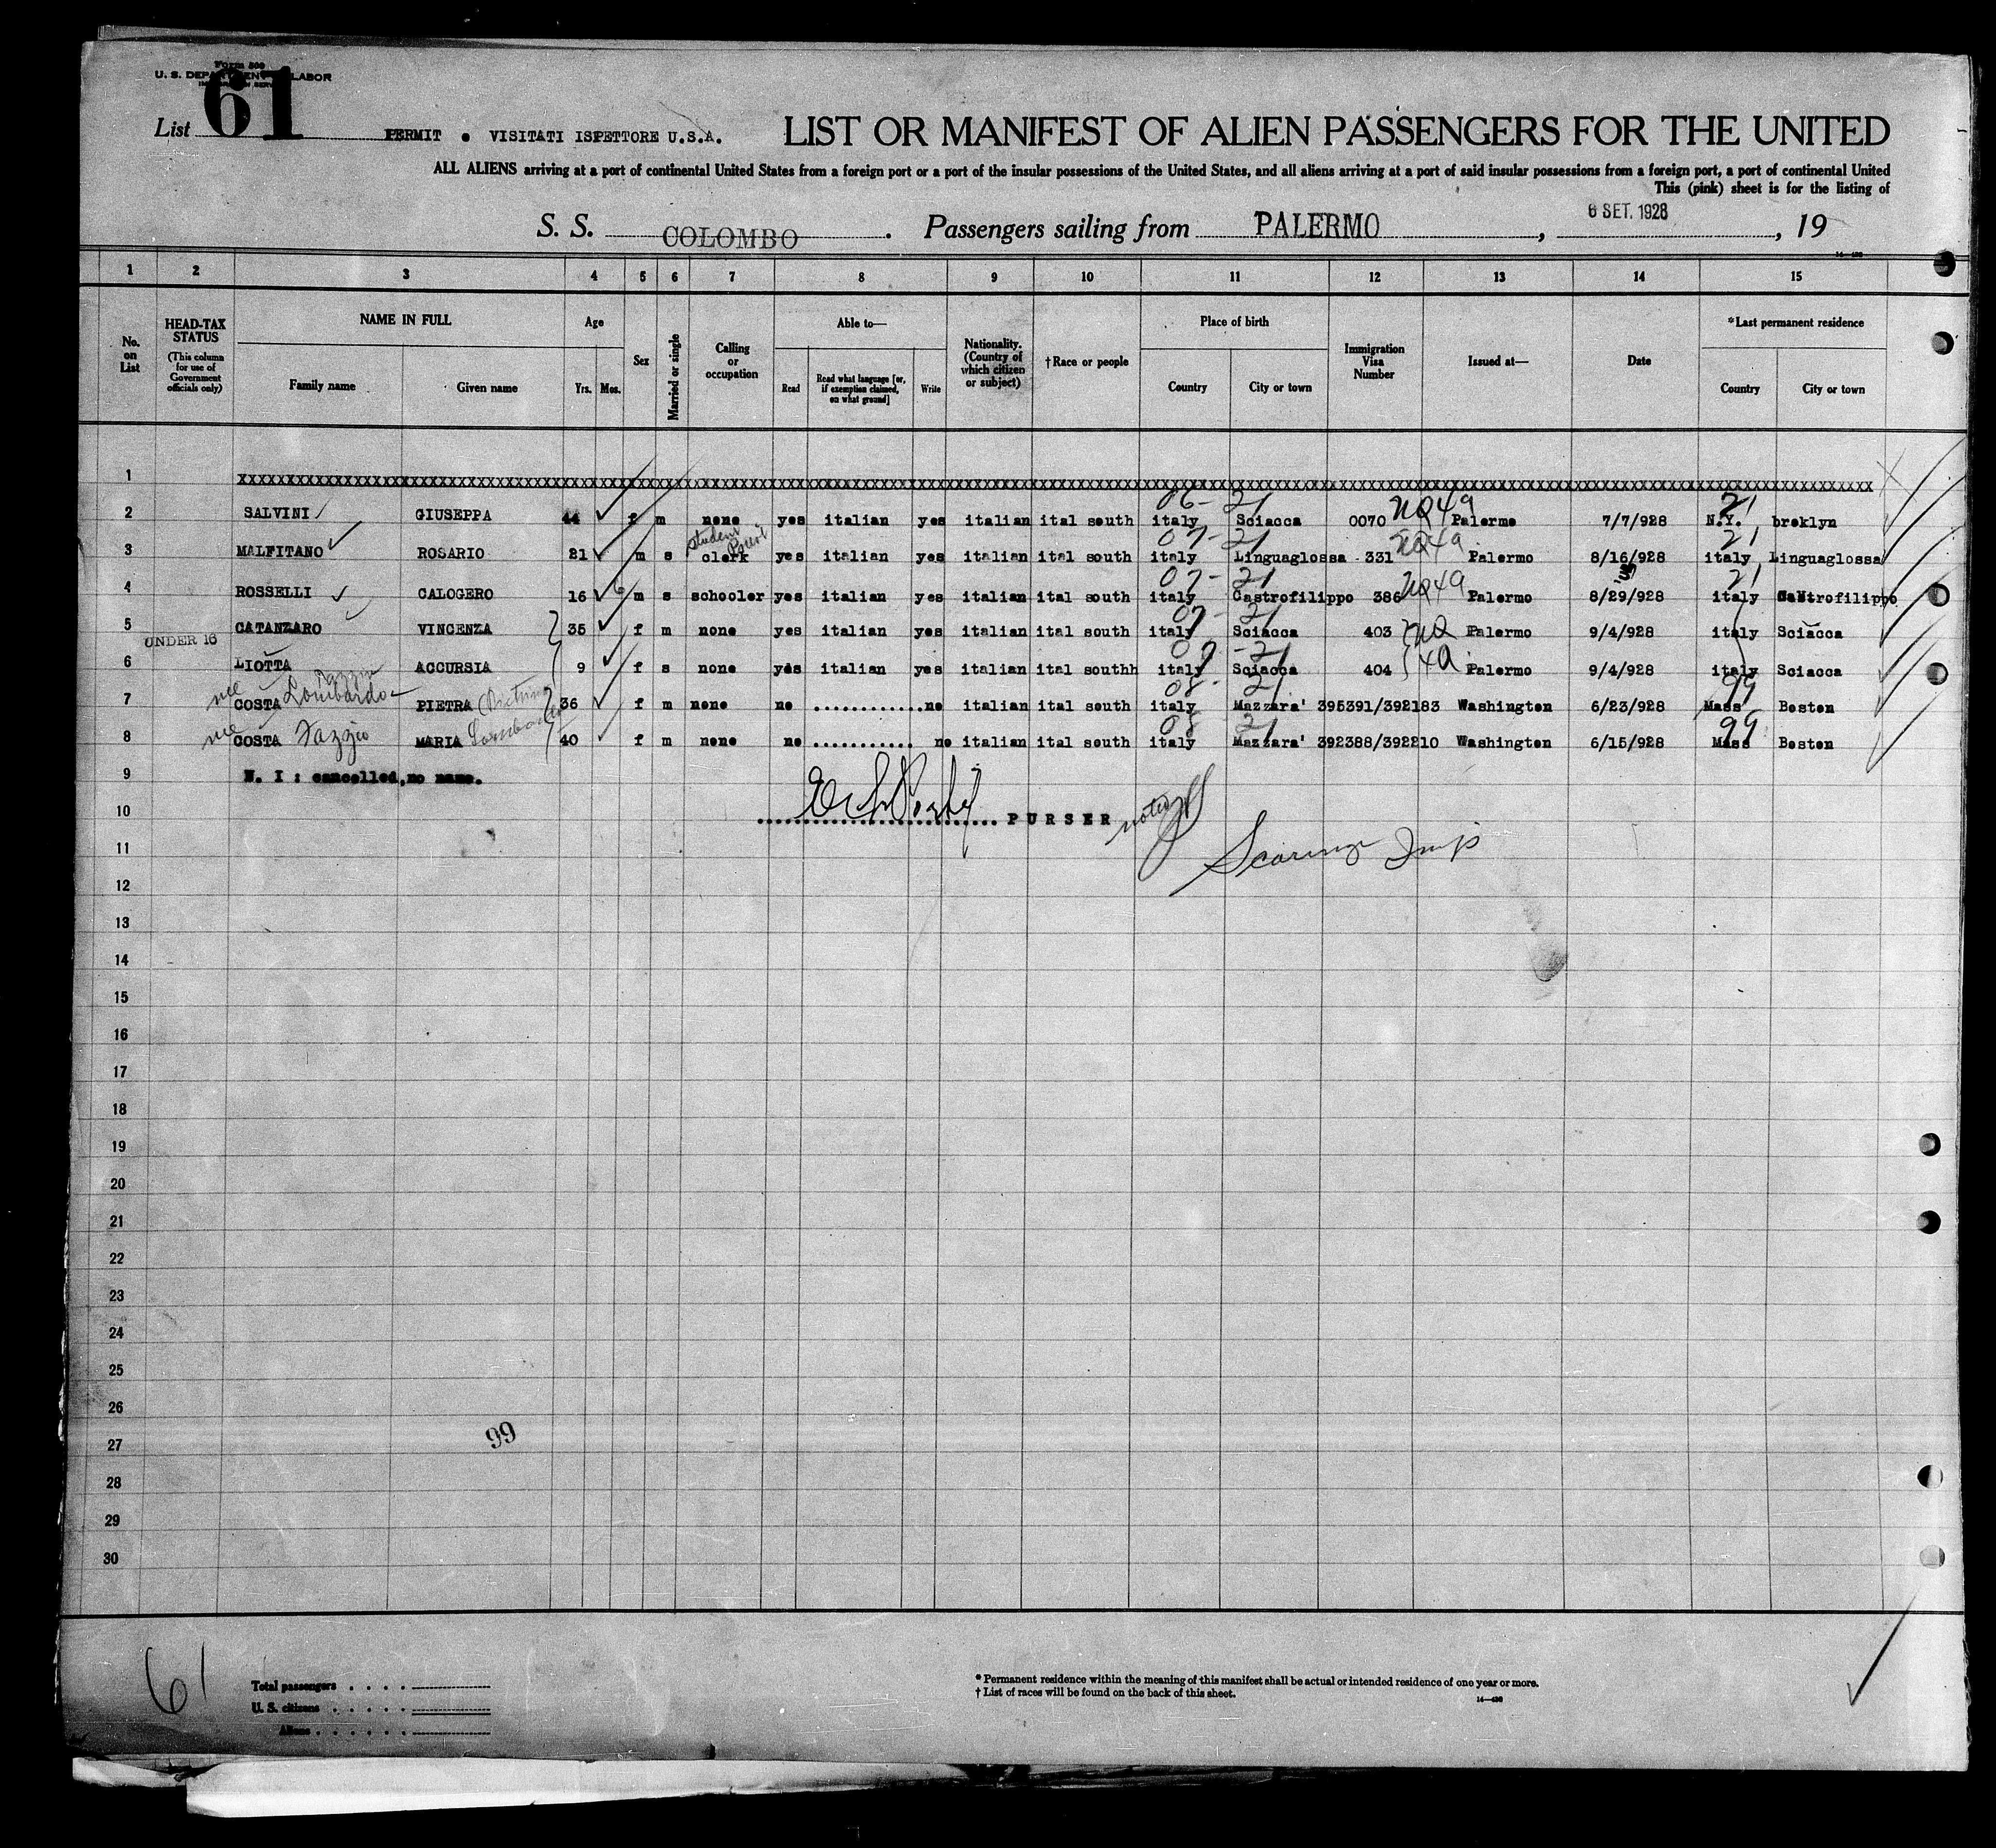 Form 500
U. S. DEPARTMENT OF LABOR
List 61 PERMIT • VISITATI ISPETTORE U.S.A. LIST OR MANIFEST OF ALIEN PASSENGERS FOR THE UNITED
ALL ALIENS arriving at a port of continental United States from a foreign port or a port of the insular possessions of the United States, and all aliens arriving at a port of said insular possessions from a foreign port, a port of continental United
This (pink) sheet is for the listing of
6 SET. 1928
S. S. COLOMBO . Passengers sailing from PALERMO , , 19
1 2 3 4 5 6 7 8 9 10 11 12 13 14 15
No. on List HEAD-TAX STATUS (This column for use of Government officials only) NAME IN FULL Family name Given name Age Yrs. Mos. Sex Married or single Calling or occupation Able to— Read Read what language [or, if exemption claimed, on what ground] Write Nationality. (Country of which citizen or subject) †Race or people Place of birth Country City or town Immigration Visa Number Issued at— Date *Last permanent residence Country City or town
1 xxxxxxxxxxxxxxxxxxxxxxxxxxxxxxxxxxxxxxxxxxxxxxxxxxxxxxxxxxxxxxxxxxxxxxxxxxxxxxxx
06- 21 NQ4a 21
2 SALVINI GIUSEPPA 44 f m none yes italian yes italian ital south italy Sciacca 0070 Palermo 7/7/928 N.Y. broklyn
student 07- 21 NQ4a 21
3 MALFITANO ROSARIO 21 m s clerk yes italian yes italian ital south italy Linguaglossa 331 Palermo 8/16/928 italy Linguaglossa
07- 21 NQ4a 21
4 ROSSELLI CALOGERO 16 6 m s schooler yes italian yes italian ital south italy Castrofilippo 386 Palermo 8/29/928 italy Castrofilippo
07- 21
5 CATANZARO VINCENZA 35 f m none yes italian yes italian ital south italy Sciacca 403 NQ Palermo 9/4/928 italy Sciacca
UNDER 16
07 -21
6 LIOTTA ACCURSIA 9 f s none yes italian yes italian ital southh italy Sciacca 404 4a Palermo 9/4/928 italy Sciacca
nee Lombardo 08- 21 99
7 COSTA PIETRA 36 f m none no ............no italian ital south italy Mazzara' 395391/392183 Washington 6/23/928 Mass Boston
nee Fazzio Lombardo 08- 21 99
8 COSTA MARIA 40 f m none no ............ no italian ital south italy Mazzara' 392388/392210 Washington 6/15/928 Mass Boston
9 N. I : cancelled,no name.
10 ............................ PURSER noted
11
12
13
14
15
16
17
18
19
20
21
22
23
24
25
26
99
27
28
29
30
61
Total passengers . . . .
U. S. citizens . . . . .
Aliens . . . . . .
* Permanent residence within the meaning of this manifest shall be actual or intended residence of one year or more.
† List of races will be found on the back of this sheet.
14—430